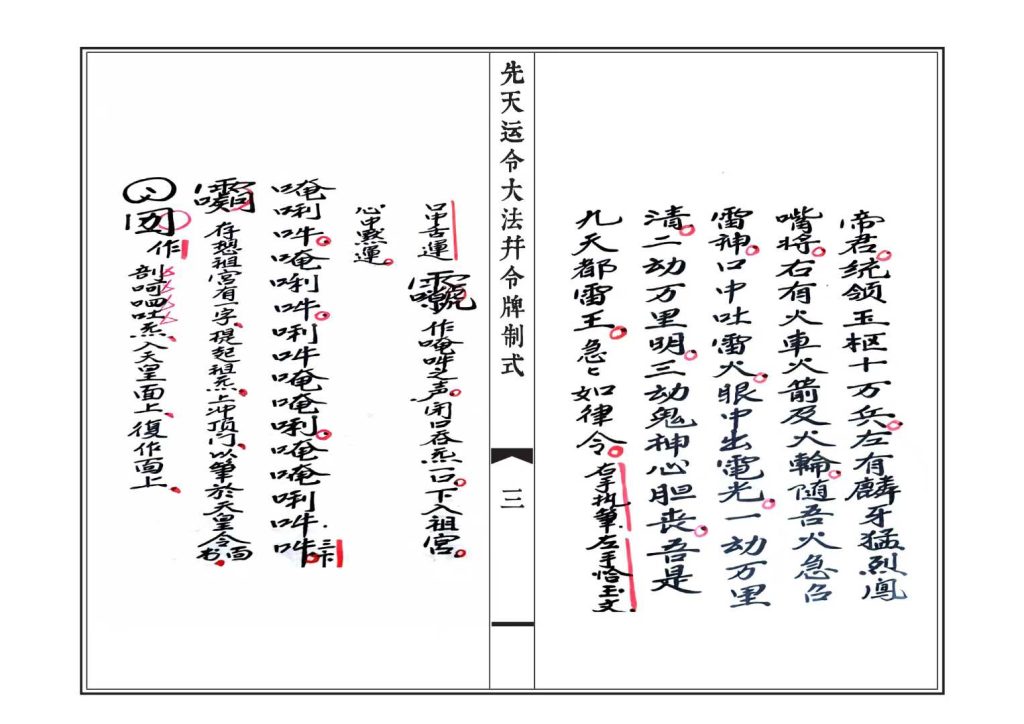 帝君。统领玉枢十万兵。左有麟牙猛烈鳳
嘴将。右有火車火箭及火輪。随吾火急召
雷神。口中吐雷火。眼中出電光。一动万里
清。二动万里明。三动鬼神心胆丧。吾是
九天都雷王。急々如律令。右手执筆.左手恰玉文.
先天运令大法并令牌制式
三
口中舌運
作唵吽之声。闭口吞炁一口。下入祖宫。
心中默運。
唵唎吽。唵唎吽。唎吽唵唵唎。唵唵唎吽.吽.
存想祖宫有一字.提起祖炁.上冲顶门.以筆於天皇令面书.
作
剖呵四吐炁.入天皇面上.復作面上.